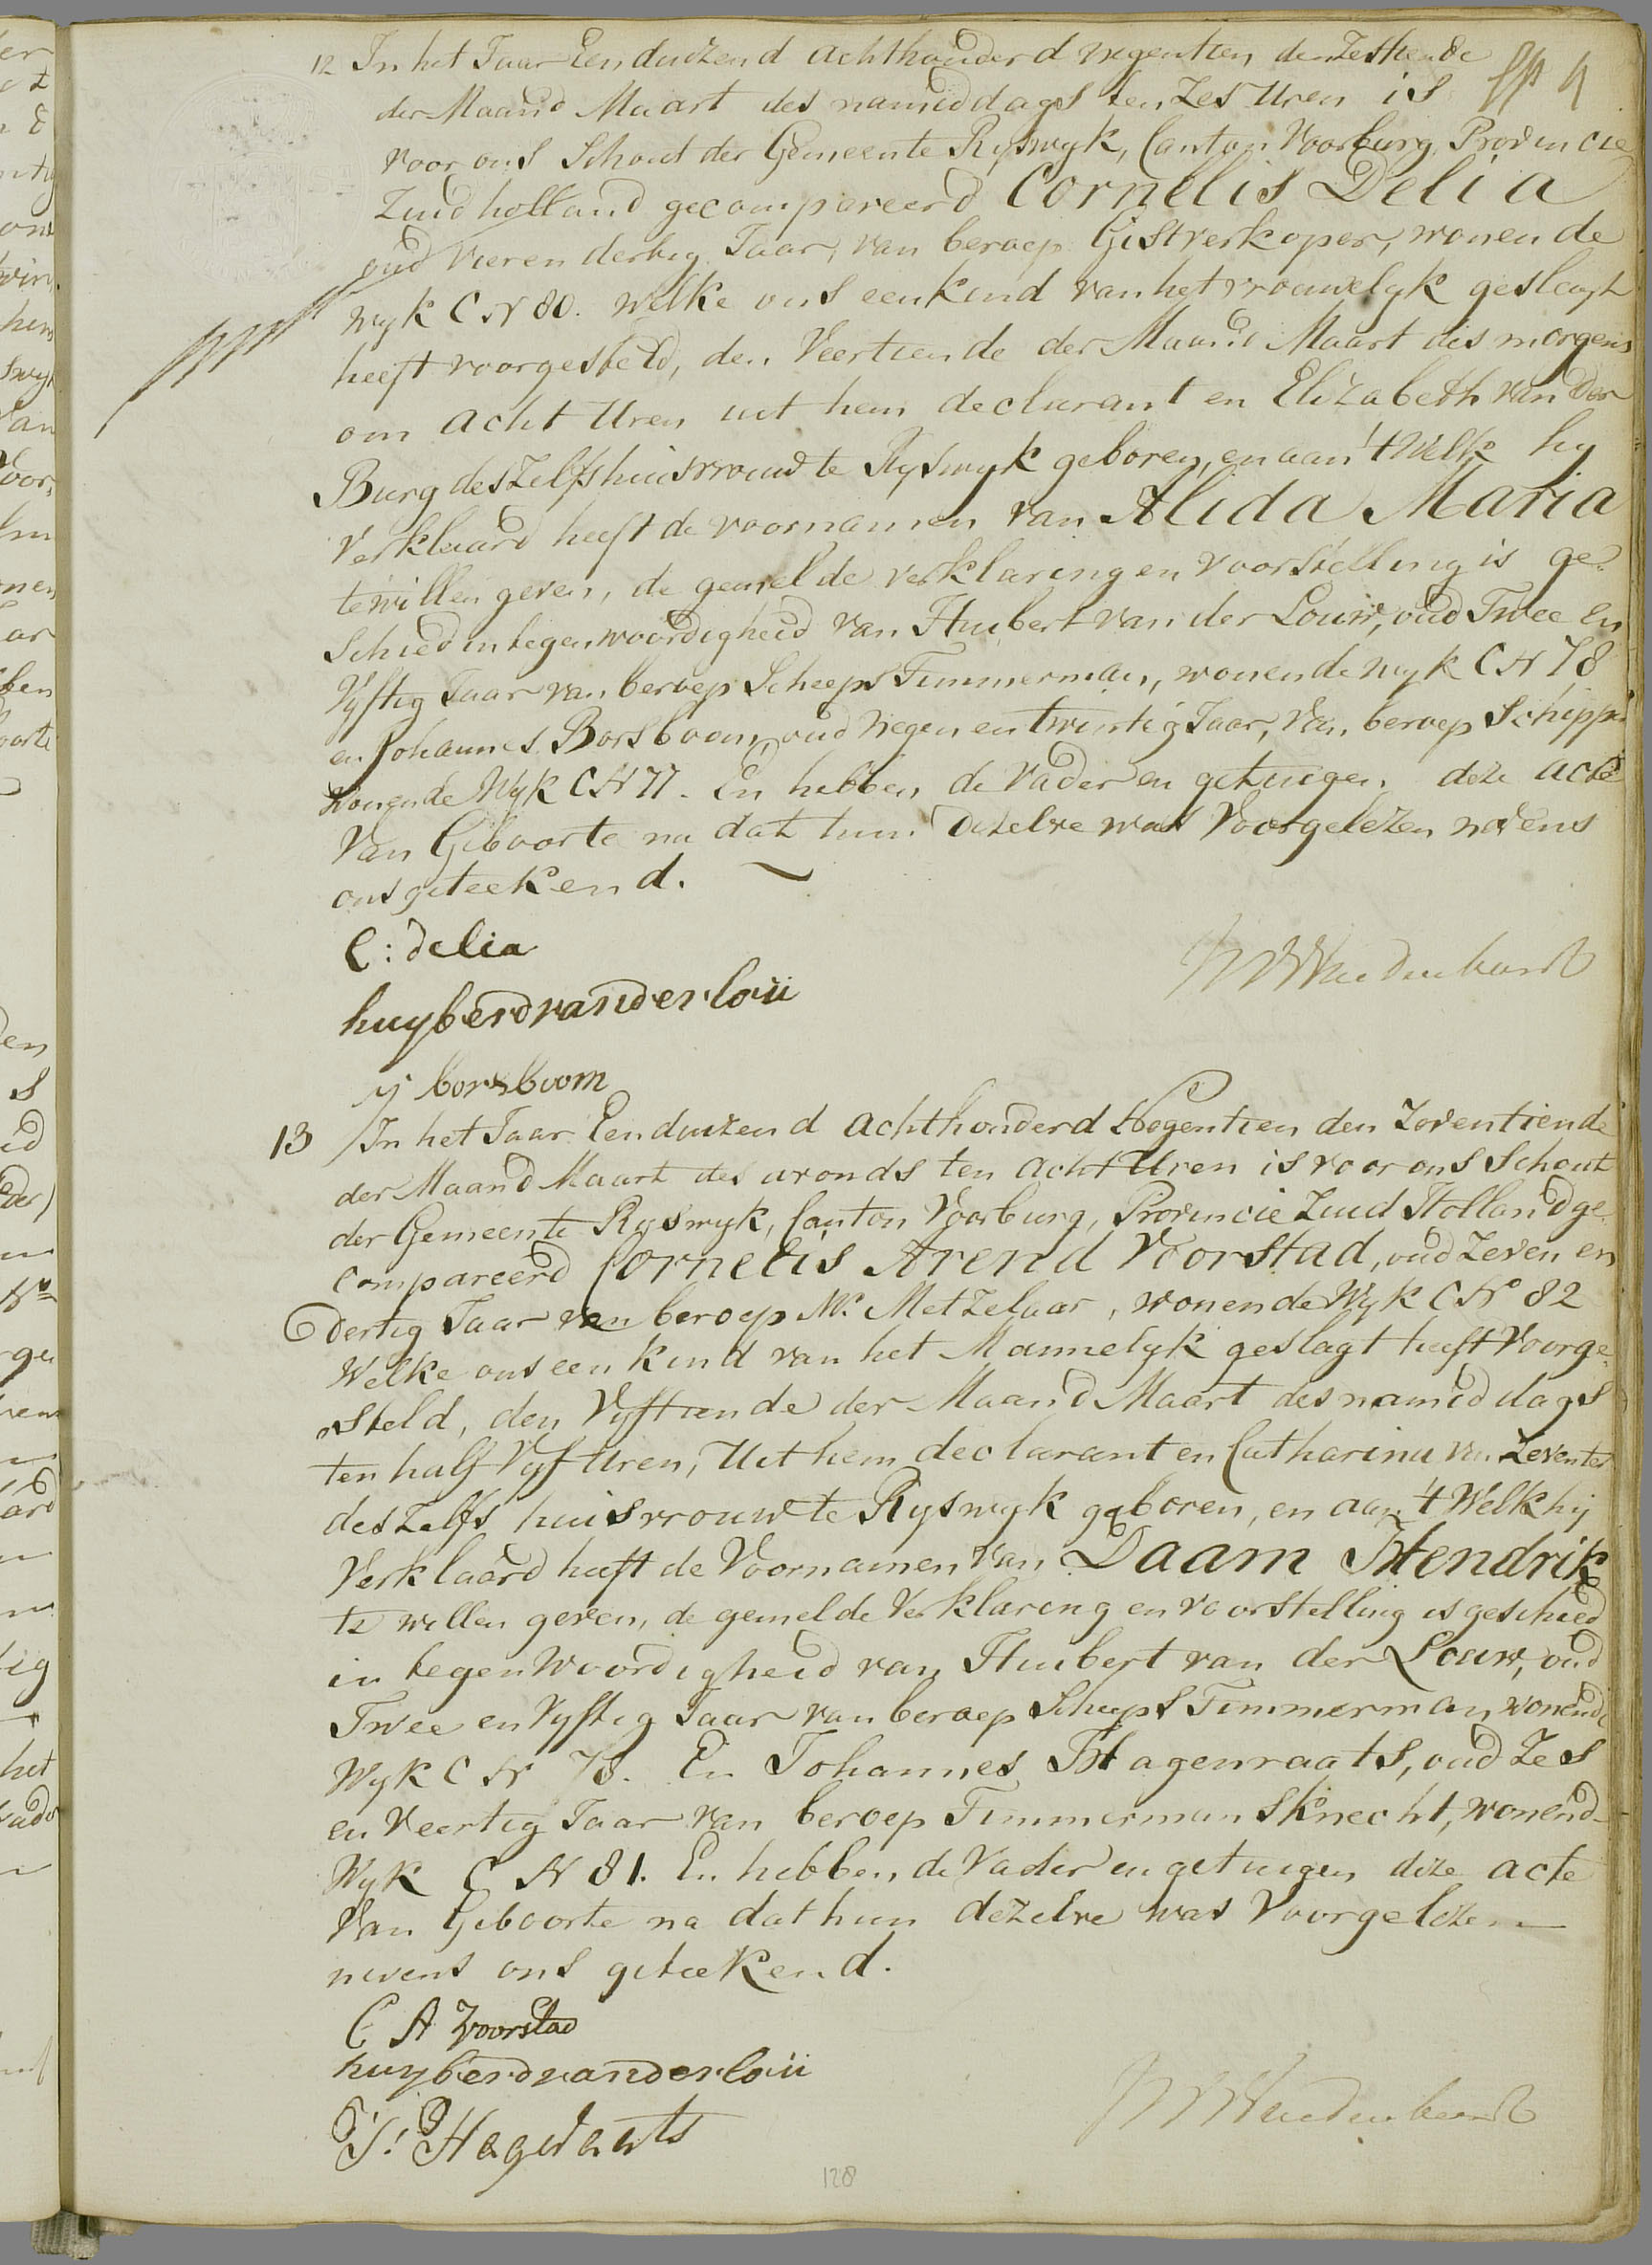 12 In het Jaar Eenduizend achthonderd negentien den Zestiende
der Maand Maart des namiddags ten Zes Uren is
voor ons Schout der Gemeente Ryswyk, Canton Voorburg, Provincie
Zuidholland gecompareerd Cornelis Delia
oud Vier en dertig Jaar, van beroep Gistverkoper, wonende
wyk C N 80. welke ons een kind van het vrouwelyk geslagt
heeft voorgesteld, den Veertiende der Maand Maart des morgens
om acht Uren uit hem declarant en Elizabeth van der
Burg deszelfs huisvrouw te Ryswyk geboren, en aan 't Welk hy
Verklaard heeft de voornamen van Alida Maria
te willen geven, de gemelde verklaring en voorstelling is ge-
schied in tegenwoordigheid van Huibert van der Louw, oud Twee en
Vyftig Jaar van beroep Scheeps Timmerman, wonende wyk C N 78
en Johannes Borsboom, oud Negen en twintig Jaar, van beroep Schipper
wonende Wyk C N 77. En hebben de Vader en getuigen deze acte
Van Geboorte na dat hun dezelve was Voorgelezen nevens
ons geteekend.
C: delia
huyberd van der loü
j borsboom
13 In het Jaar Eenduizend achthonderd Negentien den Zeventiende
der Maand Maart des avonds ten acht Uren is voor ons Schout
der Gemeente Ryswyk, Canton Voorburg, Provincie Zuid Holland ge-
compareerd Cornelis Arend Voorstad, oud Zeven en
dertig Jaar van beroep Mr. Metzelaar, wonende Wyk C No 82
Welke ons een kind van het Mannelyk geslagt heeft Voorge-
steld, den Vyftiende der Maand Maart des namiddags
ten half Vyf Uren, Uit hem declarant en Catharina van Zeventer
deszelfs huisvrouw te Ryswyk geboren, en aan 't Welk hij
Verklaard heeft de Voornamen van Daam Hendrik
te willen geven, de gemelde Verklaring en voorstelling is geschied
in tegenwoordigheid van Huibert van der Louw, oud
Twee en Vyftig Jaar van beroep Scheeps Timmerman, wonende
Wyk C N 78. En Johannes Hagenraats, oud Zes
en Veertig Jaar van beroep Timmermans Knecht, wonend
Wyk C N 81. En hebben de Vader en getuigen deze acte
Van Geboorte na dat hun dezelve was Voorgelezen
nevens ons geteekend.
C A Voorstad
huyberd van der loü
J: Hagenraats
128